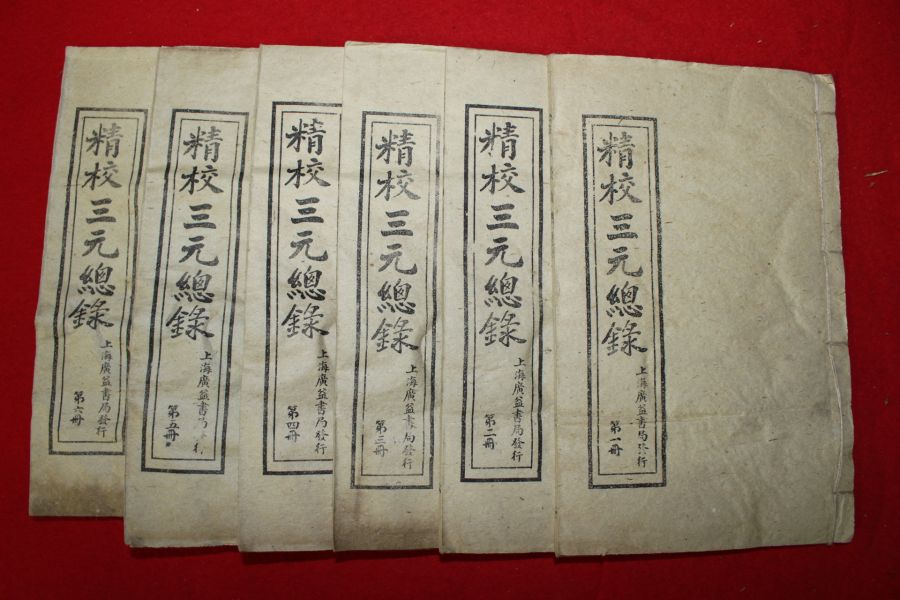 精校三元總錄
上海廣益書局發行
第一冊
精校三元總錄
上海廣益書局發行
第二冊
精校三元總錄
上海廣益書局發行
第三冊
精校三元總錄
上海廣益書局發行
第四冊
精校三元總錄
上海廣益書局發行
第五冊
精校三元總錄
上海廣益書局發行
第六冊